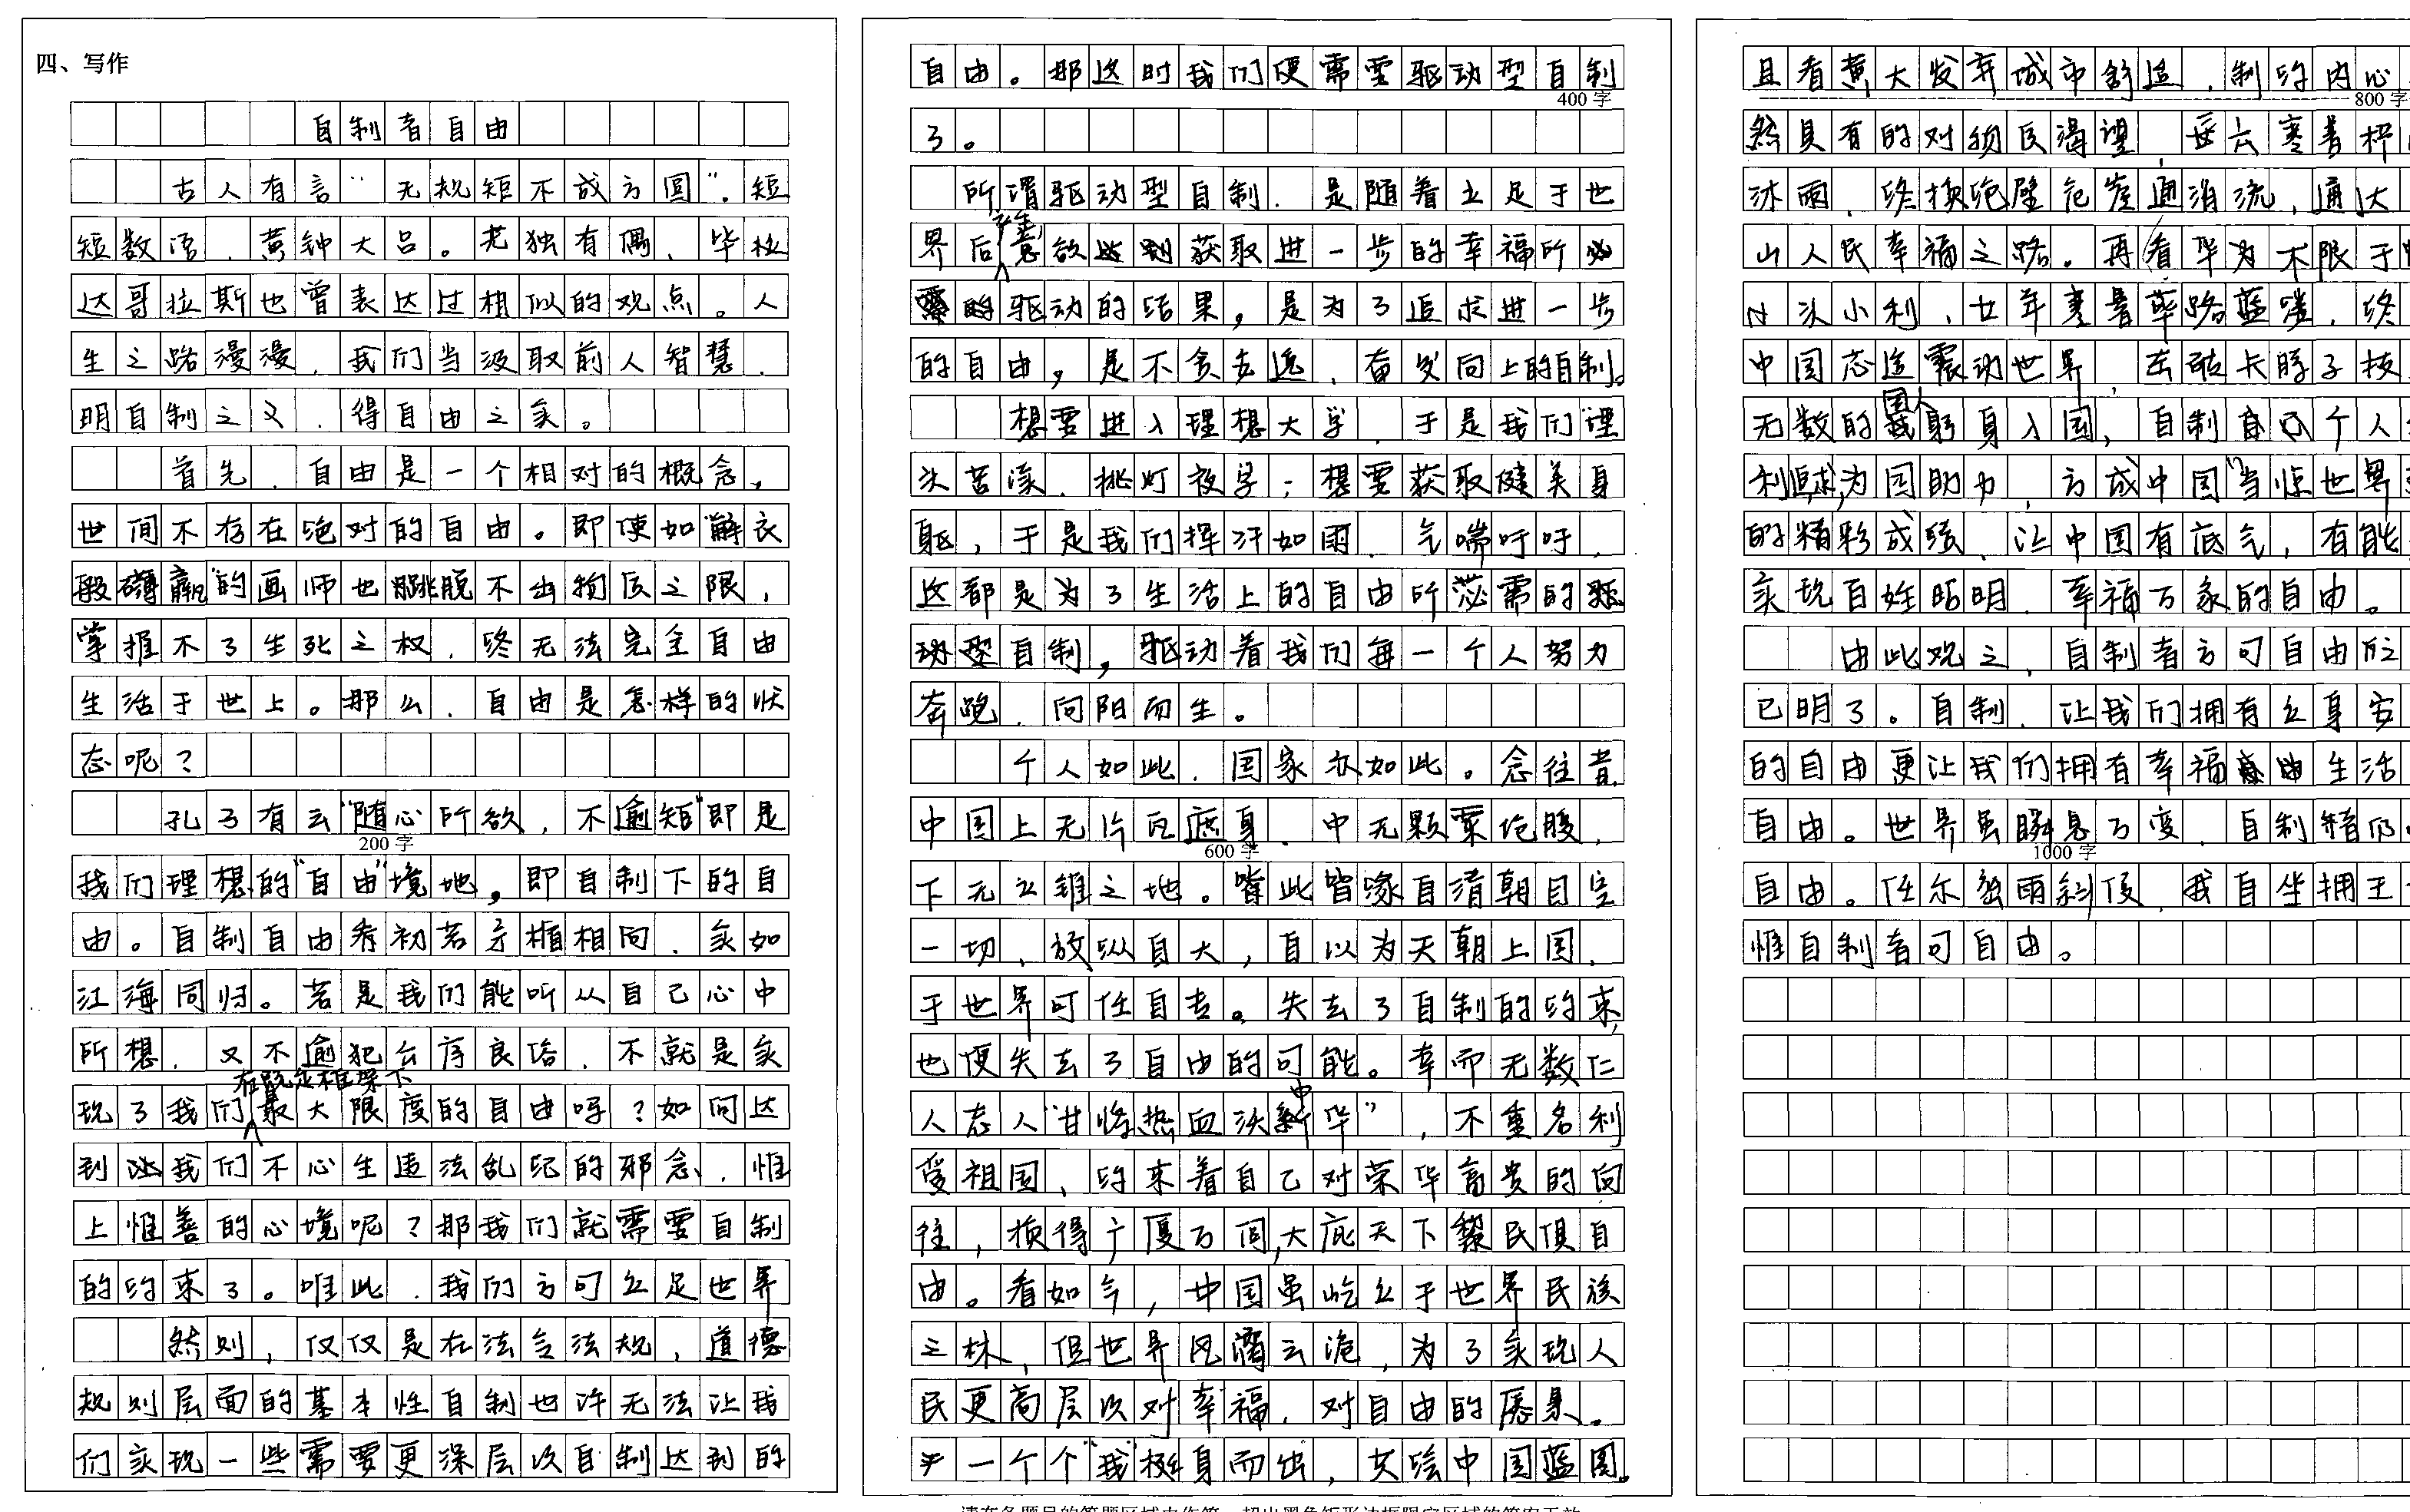 四、写作
自制者自由
古人有言“无规矩不成方圆”。短
短数语、黄钟大吕。无独有偶、毕拉
达哥拉斯也曾表达过相似的观点。人
生之路漫漫、我们当汲取前人智慧、
明自制之义、得自由之实。
首先、自由是一个相对的概念,
世间不存在绝对的自由。即使如“解衣
般礴羸”的画师也跳脱不出物质之限,
掌握不了生死之权、终无法完全自由
生活于世上。那么、自由是怎样的状
态呢?
孔子有云“随心所欲,不逾矩”即是
200字
我们理想的“自由”境地,即自制下的自
由。自制自由看初若矛楯相向、实如
江海同归。若是我们能听从自己心中
所想、又不逾犯公序良俗、不就是实
现了我们在既定框架下最大限度的自由吗?如何达
到我们不心生违法乱纪的邪念、惟
上惟善的心境呢?那我们就需要自制
的约束了。唯此、我们方可立足世界
然则,仅仅是在法令法规,道德
规则层面的基本性自制也许无法让我
们实现一些需要更深层次自制达到的
自由。那这时我们便需要驱动型自制
400字
了。
所谓驱动型自制、是随着立足于世
界后产生意欲获取进一步的幸福所
驱动的结果,是为了追求进一步
的自由,是不贪安逸、奋发向上的自制。
想要进入理想大学、于是我们埋
头苦读、挑灯夜学;想要获取健美身
躯,于是我们挥汗如雨、气喘吁吁、
这都是为了生活上的自由所必需的驱
动型自制,驱动着我们每一个人努力
奔跑、向阳而生。
个人如此、国家亦如此。念往昔
中国上无片瓦遮身、中无颗粟饱腹、
600字
下无立锥之地。此皆缘自清朝目空
一切、放纵自大,自以为天朝上国、
于世界可任自专。失去了自制的约束,
也便失去了自由的可能。幸而无数仁
人志人“甘将热血沃中华”,不重名利
爱祖国、约束着自己对荣华富贵的向
往,换得广厦万间,大庇天下黎民俱自
由。看如今,中国虽屹立于世界民族
之林,但世界风谲云诡,为了实现人
民更高层次对幸福、对自由的愿景。
一个个“我”挺身而出,共绘中国蓝图。
且看黄大发弃城市舒适、制约内心
800字
然具有的对物质渴望、卅六寒暑栉
沐雨、终换绝壁危崖通清流,通达
山人民幸福之路。再看华为不限于
头小利、廿年寒暑筚路蓝缕、终
中国芯造震动世界、击破卡脖子技
无数的国人躬身入国,自制个人
利追求,为国助力、方成中国“当惊世界
的精彩成绩、让中国有底气,有能
实现百姓昭明、幸福万家的自由。
由此观之、自制者方可自由的
已明了。自制、让我们拥有立身安
的自由更让我们拥有幸福生活
自由。世界虽瞬息万变、自制精仍
1000字
自由。任尔狂雨斜侵、我自坐拥王
惟自制者可自由。